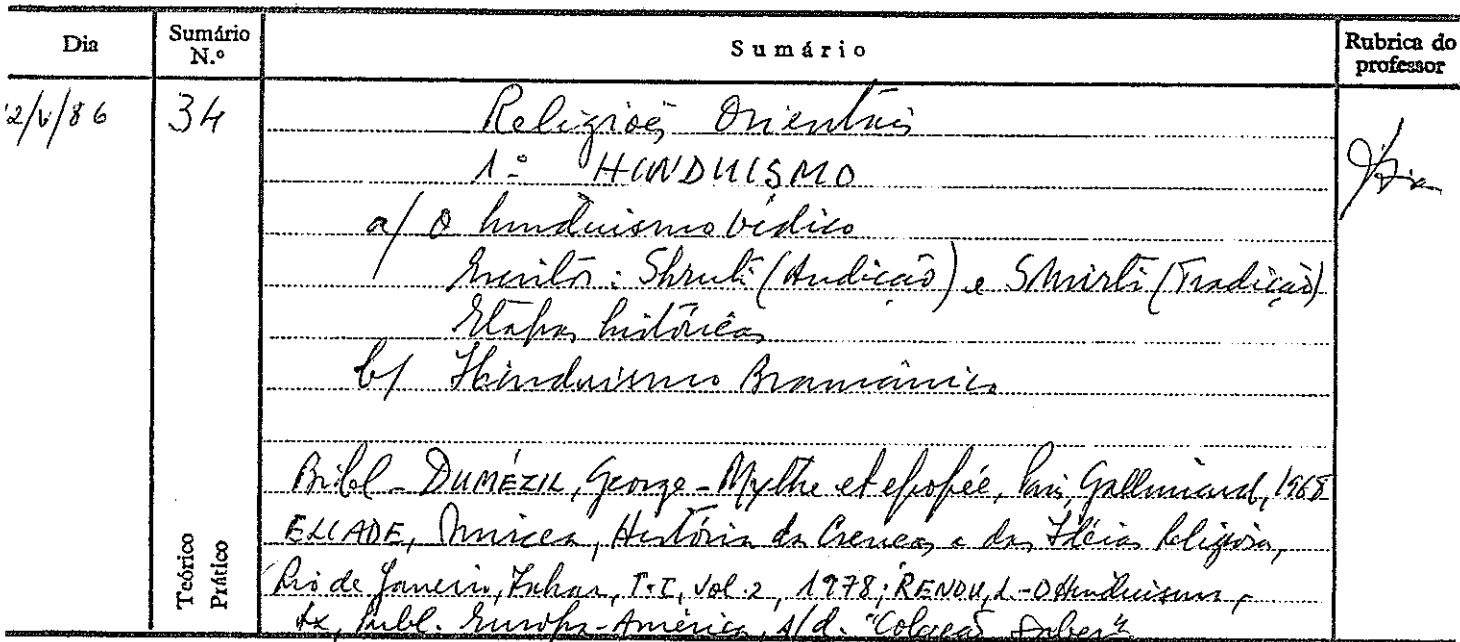 Dia Sumário N.º Sumário Rubrica do professor
2/V/86 34 Religiões Orientais
1º HINDUISMO
a/ O hinduismo védico
Escritos: Shruti (Audição) e Smirti (Tradição)
Etapas históricas
b/ Hinduismo Bramânico
Bibl - DUMÉZIL, George - Mythe et epopée, Paris, Gallimard, 1968
ELIADE, Mircea, História das Crenças e das Idéias Religiosas,
Rio de Janeiro, Zahar, T.I, Vol. 2, 1978; RENOU, L. - O Hinduismo,
Lx, Publ. Europa-América, s/d. "Colecção Saber"
Teórico
Prático